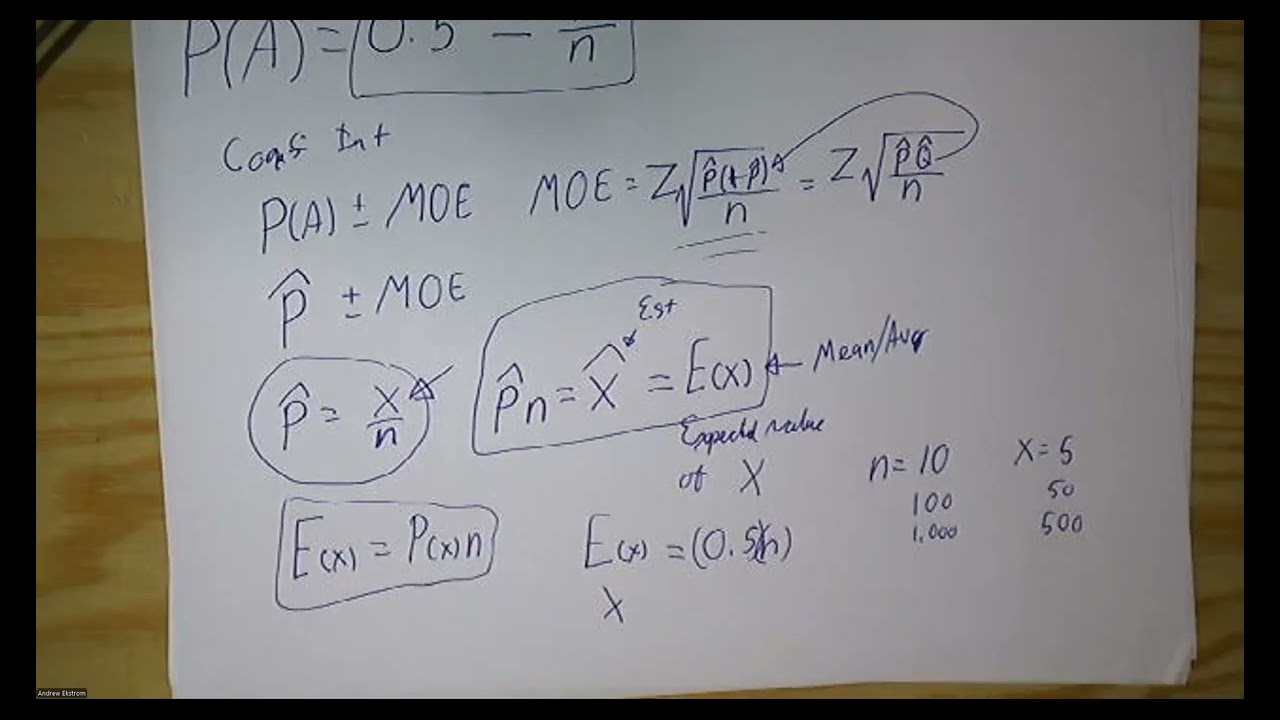 P(A) = 0.5 - —/n
Conf Int
P(A) ± MOE MOE = Z√(P̂(1-P̂)/n) = Z√(P̂Q̂/n)
P̂ ± MOE
Est
P̂ = X/n P̂n = X̂ = E(x) ← Mean/Avg
Expected value
of X
n=10 X=5
100 50
1,000 500
E(x) = P(x)n E(x) = (0.5)(n)
X
Andrew Ekstrom